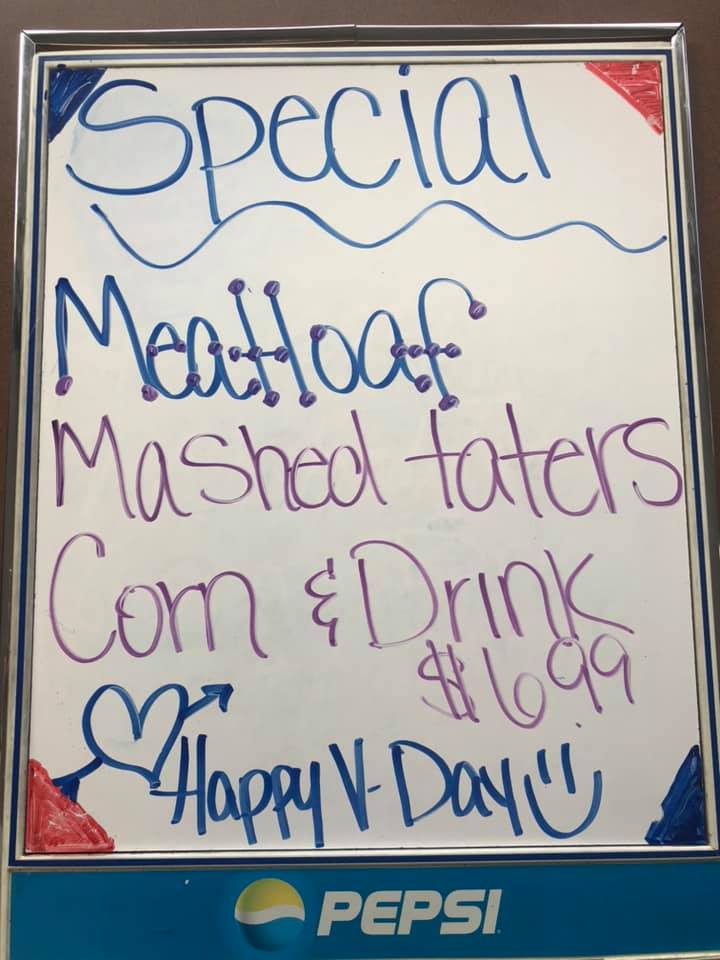 Special
Meatloaf
Mashed taters
Corn & Drink
$6.99
Happy V-Day
PEPSI